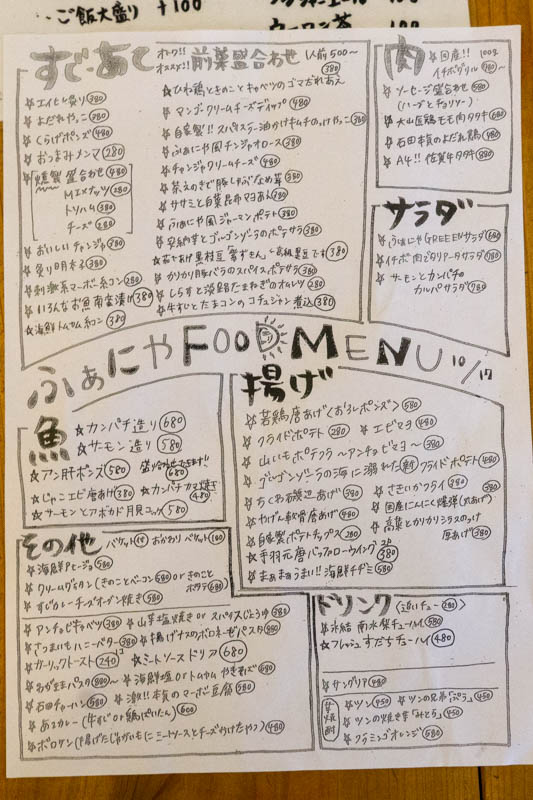 ご飯大盛り +100
ウーロン茶
すピーあて
オトク!!
オススメ!!
前菜盛合わせ 1人前500〜
☆エイヒレ炙り 380
☆よだれやっこ 280
☆くらげポンズ 480
☆おつまみメンマ 280
☆燻製 盛合わせ 480
トリハム 380
チーズ 280
☆おいしいチャンジャ 280
☆炙り明太子 380
☆刺激系マーボー系コン 280
☆いろんなお魚南蛮漬け 380
☆海鮮トムヤム系コン 380
☆ひね鶏ときのことキャベツのゴマだれあえ 380
☆マンゴークリームチーズディップ 480
☆自家製!!スパイスラー油かけキムチのっけやっこ 380
☆ふぁにや風チンジャオロース 380
☆チャンジャクリームチーズ 480
☆ササミと白菜昆布マヨあえ 380
☆ふぁにや風ジャーマンポテト 380
☆安納芋とゴルゴンゾーラのポテサラ 380
☆かりかり豚バラのスパイスポテサラ 380
☆しらすと淡路たまねぎのオムレツ 380
☆牛すじとたまコンのコチュジャン煮込 380
肉
☆国産!! 100g
イチボグリル
☆ソーセージ盛合わせ 580
(ハーブとチョリソー)
☆大山鶏モモ肉タタキ 680
☆石田本気のよだれ鶏 480
☆A4!!佐賀牛タタキ 880
サラダ
☆ふぁにやGREEENサラダ 680
☆イチボ肉のタリアータサラダ 780
☆サーモンとカンパチの
カルパサラダ 780
ふぁにやFOOD MENU 10/17
魚
☆カンパチ造り 680
☆サーモン造り 580
☆アン肝ポンズ 580
盛り合わせできます!! 680
☆じゃこエビ唐あげ 380
☆カンパチカマ焼き 480
☆サーモンとアボカド月見ユッケ 580
揚げ
☆若鶏唐あげ〈おろしポンズ〉 580
☆フライドポテト 280
☆エビマヨ 480
☆山いもポテフラ〜アンチョビマヨ〜 380
☆ゴルゴンゾーラの海に溺れた新フライドポテト 480
☆ちくわ磯辺あげ 380
☆さきいかフライ 380
☆やげん軟骨唐あげ 480
☆国産にんにく爆弾(丸あげ)
☆自家製ポテトチップス 280
☆高菜とカリカリシラスのっけ
厚あげ 380
☆手羽元唐バッファローウイング 2コ 380
☆まぁまぁうまい!!海鮮チヂミ 580
その他
バケット 150
おかわりバケット 100
☆海鮮アヒージョ 580
☆クリームグラタン(きのことベーコン 580 orきのこと
ホタテ 680)
☆すじカレーチーズオーブン焼き 580
☆アンチョビキャベツ 380
☆山芋塩焼き or スパイスじょうゆ 380
☆さつまいもハニーバター 380
☆揚げナスのボロネーゼパスタ 880
☆ガーリックトースト 240
☆ミートソースドリア 680
☆わがままパスタ 880〜
☆海鮮塩 or トムヤム やきそば 580
☆石田チャーハン 580
☆激!!本気のマーボ豆腐 580
☆あうカレー(牛すじ or 鶏ぱいたん) 600
☆ボロゲン(揚げたじゃがいもにミートソースとチーズかけたやつ) 480
ドリンク
(追いチュー 280)
☆氷結 南水梨チューハイ 580
☆フレッシュすだちチューハイ 480
☆サングリア 480
甘焼酎
☆ツン 450
☆ツンの兄弟「ぷう」 450
☆ツンの焼き芋「みとら」 450
☆フラミンゴオレンジ 580